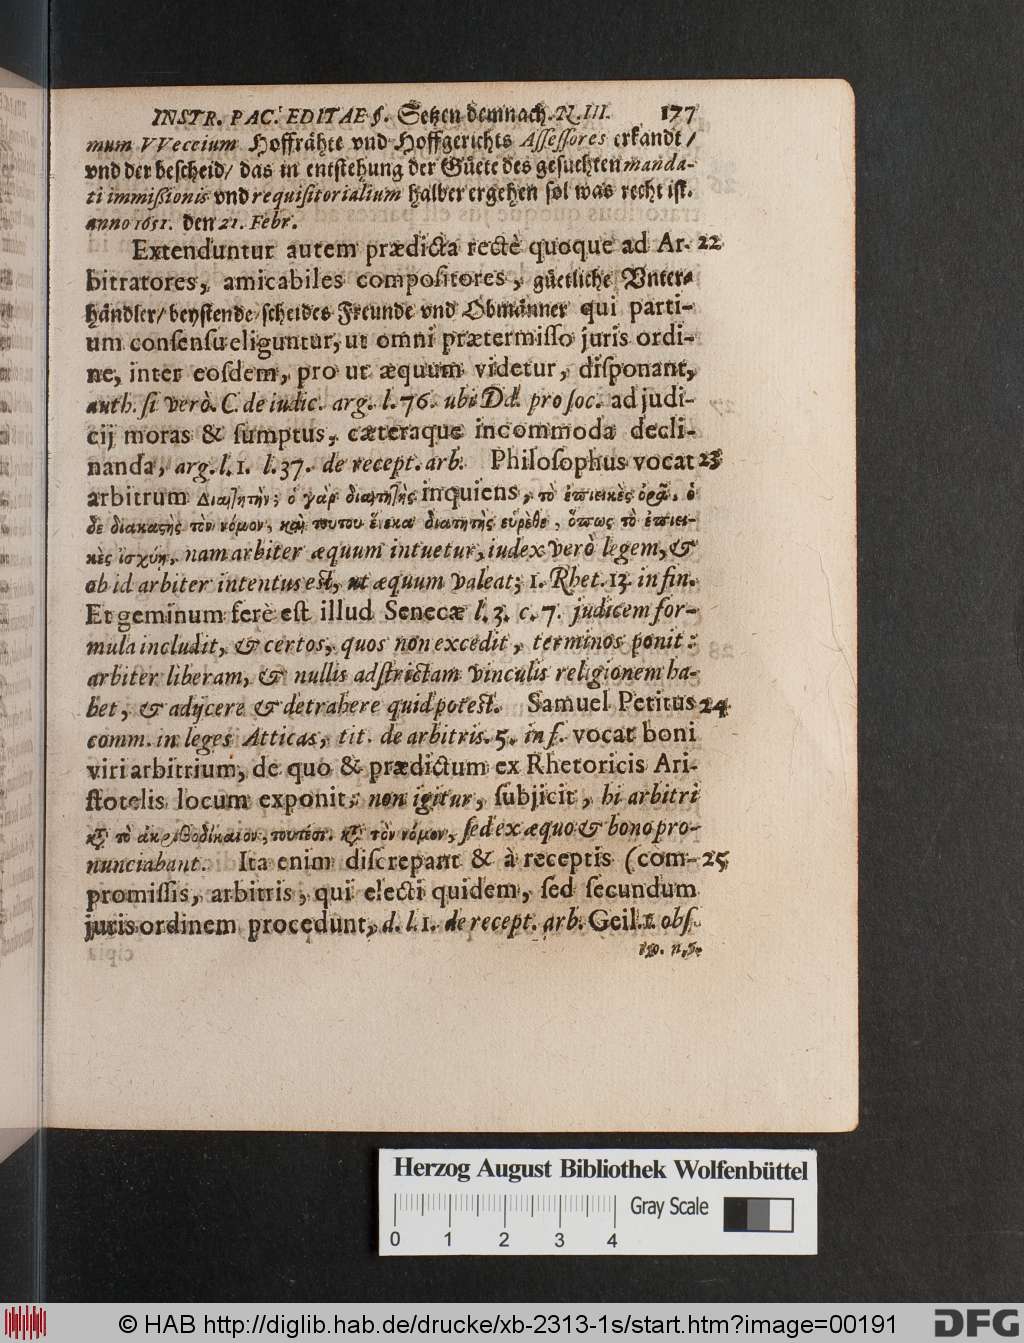 INSTR. PAC. EDITAE §. Setzen demnach. N. III. 177
mum VVeccium Hoffrähte vnd Hoffgerichts Assessores erkandt/
vnd der bescheid/ das in entstehung der Güete des gesuchten manda-
ti immißionis vnd requisitorialium halber ergehen sol was recht ist.
anno 1651. den 21. Febr.
Extenduntur autem prædicta rectè quoque ad Ar- 22
bitratores, amicabiles compositores, güetliche Vnter-
händler/ beystende/ scheides Freunde vnd Obmänner qui parti-
um consensu eliguntur, ut omni prætermisso juris ordi-
ne, inter eosdem, pro ut æquum videtur, disponant,
auth. si verò. C. de iudic. arg. l. 76. ubi Dd. pro soc. ad judi-
cij moras & sumptus, cæteraque incommoda decli-
nanda, arg. l. 1. l. 37. de recept. arb. Philosophus vocat 23
arbitrum Διαιτητὴν; ὁ γὰρ διαιτητὴς inquiens, τὸ ἐπιεικὲς ὁρᾷ. ὁ
δε δικαςὴς τὸν νόμον, καὶ τουτου ἕνεκα διαιτητὴς εὑρέθε, ὅπως τὸ ἐπιει-
κὲς ἰσχύῃ, nam arbiter æquum intuetur, iudex verò legem, &
ob id arbiter intentus est, ut æquum valeat; 1. Rhet. 13. in fin.
Et geminum ferè est illud Senecæ l. 3. c. 7. judicem for-
mula includit, & certos, quos non excedit, terminos ponit:
arbiter liberam, & nullis adstrictam vinculis religionem ha-
bet, & adijcere & detrahere quid potest. Samuel Petitus 24
comm. in leges Atticas, tit. de arbitris. 5. in f. vocat boni
viri arbitrium, de quo & prædictum ex Rhetoricis Ari-
stotelis locum exponit: non igitur, subjicit, hi arbitri
κατὰ τὸ ἀκριβοδίκαιον, τουτέστι κατὰ τὸν νόμον, sed ex æquo & bono pro-
nunciabant. Ita enim discrepant & à receptis (com- 25
promissis, arbitris, qui electi quidem, sed secundum
juris ordinem procedunt, d. l. 1. de recept. arb. Geil. 1. obs.
n. 5.
Herzog August Bibliothek Wolfenbüttel
Gray Scale
0 1 2 3 4
© HAB http://diglib.hab.de/drucke/xb-2313-1s/start.htm?image=00191
DFG